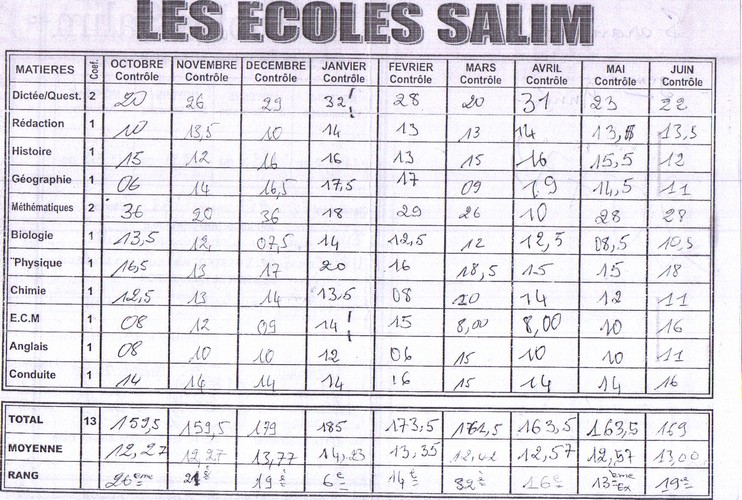 LES ECOLES SALIM
MATIERES Coef. OCTOBRE Contrôle NOVEMBRE Contrôle DECEMBRE Contrôle JANVIER Contrôle FEVRIER Contrôle MARS Contrôle AVRIL Contrôle MAI Contrôle JUIN Contrôle
Dictée/Quest. 2 20 26 29 32 28 20 31 23 22
Rédaction 1 10 13,5 10 14 13 13 14 13,5 13,5
Histoire 1 15 12 16 16 13 15 16 15,5 12
Géographie 1 06 14 16,5 17,5 17 09 19 14,5 11
Méthématiques 2 36 20 36 18 29 26 10 28 28
Biologie 1 13,5 12 07,5 14 12,5 12 12,5 08,5 10,5
Physique 1 16,5 13 17 20 16 18,5 15 15 18
Chimie 1 12,5 13 14 13,5 08 20 14 12 11
E.C.M 1 08 12 09 14 15 8,00 8,00 10 16
Anglais 1 08 10 10 12 06 15 10 10 11
Conduite 1 14 14 14 14 16 15 14 14 16
TOTAL 13 159,5 159,5 179 185 173,5 163,5 163,5 169
MOYENNE 12,27 12,27 13,77 14,23 13,35 12,57 12,57 13,00
RANG 26ème 21è 19è 6e 14è 32è 16e 13ème Ex 19e